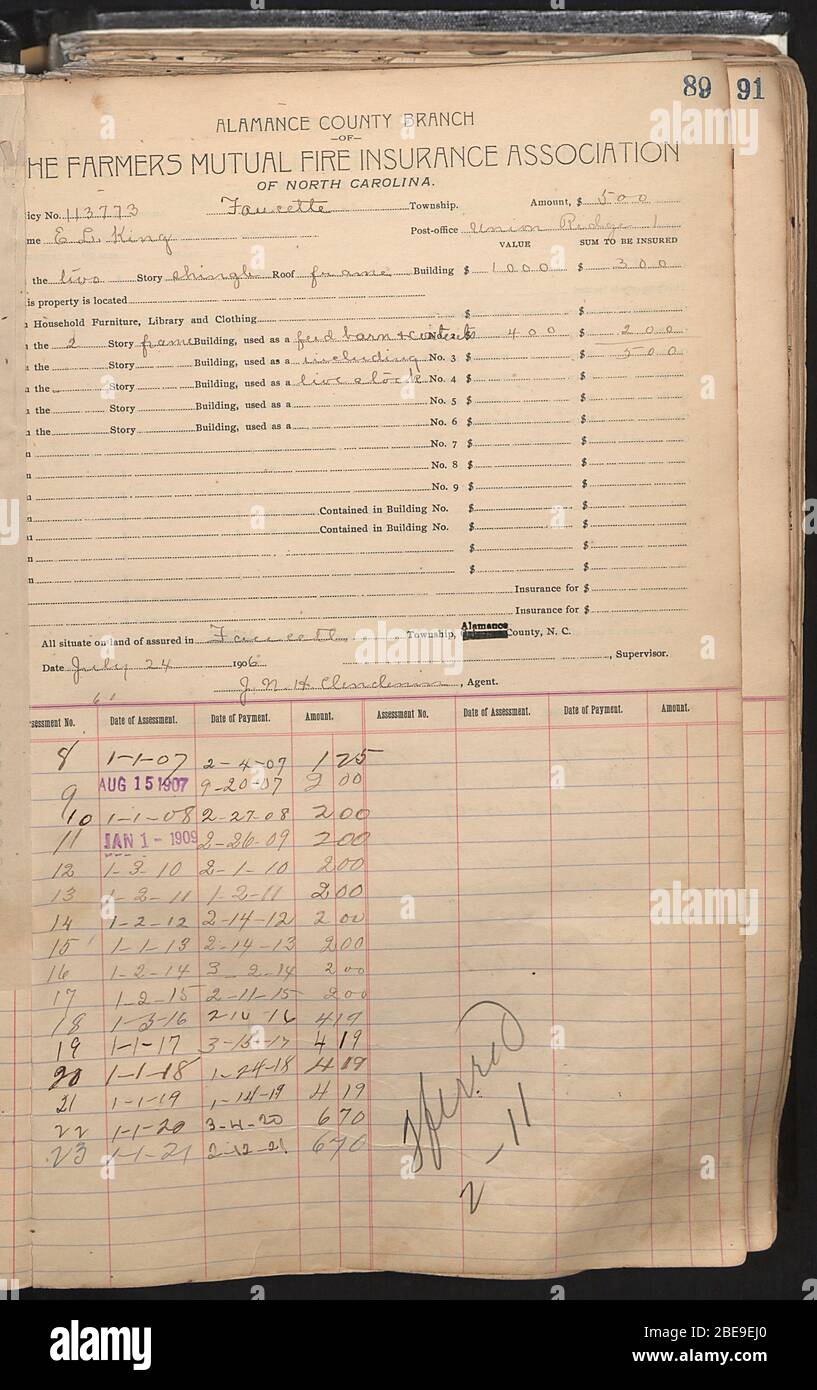 89 91
ALAMANCE COUNTY BRANCH
—OF—
HE FARMERS MUTUAL FIRE INSURANCE ASSOCIATION
OF NORTH CAROLINA.
icy No. 113773 Faucette Township. Amount, $ 500
me E. L. King Post-office Union Ridge 1
VALUE SUM TO BE INSURED
the two Story shingle Roof frame Building $ 1000 $ 300
is property is located
Household Furniture, Library and Clothing $ $
the 2 Story frame Building, used as a feed barn & contents $ 400 $ 200
the Story Building, used as a including No. 3 $ $ 500
the Story Building, used as a live stock No. 4 $ $
the Story Building, used as a No. 5 $ $
the Story Building, used as a No. 6 $ $
n No. 7 $ $
n No. 8 $ $
n No. 9 $ $
n Contained in Building No. $ $
n Contained in Building No. $ $
n $ $
n $ $
Insurance for $
Insurance for $
All situate on land of assured in Faucett Township, Alamance County, N. C.
Date July 24 1906 , Supervisor.
J. N. H. Clendenin , Agent.
ssessment No. Date of Assessment. Date of Payment. Amount. Assessment No. Date of Assessment. Date of Payment. Amount.
8 1-1-07 2-4-07 1 25
9 AUG 15 1907 9-20-07 2 00
10 1-1-08 2-27-08 2 00
11 JAN 1 - 1909 2-26-09 2 00
12 1-3-10 2-1-10 2 00
13 1-2-11 1-2-11 2 00
14 1-2-12 2-14-12 2 00
15 1-1-13 2-14-13 2 00
16 1-2-14 3-2-14 2 00
17 1-2-15 2-11-15 2 00
18 1-3-16 2-10-16 4 19
19 1-1-17 3-15-17 4 19
20 1-1-18 1-24-18 4 19
21 1-1-19 1-14-19 4 19
22 1-1-20 3-4-20 6 70
23 1-1-21 2-12-21 6 70
2-11
alamy
alamy
alamy
alamy
Image ID: 2BE9EJ0
www.alamy.com